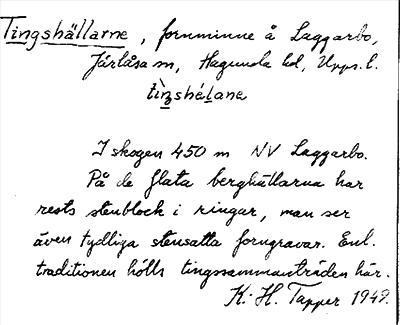 Tingshällarne, fornminne å Laggarbo,
Järlåsa sn, Hagunda hd, Upps. l.
tìŋshélane
I skogen 450 m NV Laggarbo.
På de flata berghällarna har
rests stenblock i ringar, man ser
även tydliga stensatta forngravar. Enl.
traditionen hölls tingssammanträden här.
K. H. Tapper 1949.